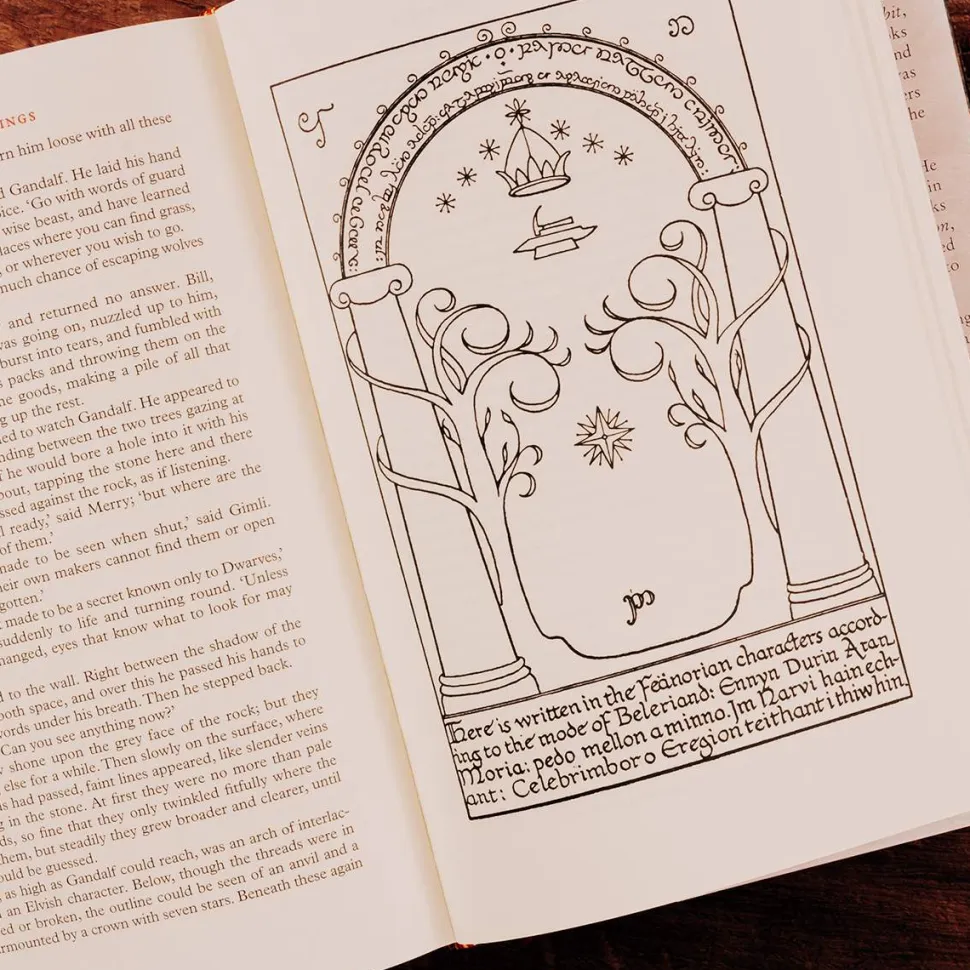 INGS
rn him loose with all these
d Gandalf. He laid his hand
oice. ‘Go with words of guard
wise beast, and have learned
laces where you can find grass,
, or wherever you wish to go.
much chance of escaping wolves
and returned no answer. Bill,
was going on, nuzzled up to him,
burst into tears, and fumbled with
s packs and throwing them on the
he goods, making a pile of all that
g up the rest.
ned to watch Gandalf. He appeared to
nding between the two trees gazing at
f he would bore a hole into it with his
bout, tapping the stone here and there
ssed against the rock, as if listening.
l ready,’ said Merry; ‘but where are the
of them.’
made to be seen when shut,’ said Gimli.
heir own makers cannot find them or open
gotten.’
t made to be a secret known only to Dwarves,’
suddenly to life and turning round. ‘Unless
hanged, eyes that know what to look for may
d to the wall. Right between the shadow of the
ooth space, and over this he passed his hands to
words under his breath. Then he stepped back.
Can you see anything now?’
shone upon the grey face of the rock; but they
else for a while. Then slowly on the surface, where
s had passed, faint lines appeared, like slender veins
g in the stone. At first they were no more than pale
ds, so fine that they only twinkled fitfully where the
hem, but steadily they grew broader and clearer, until
ould be guessed.
, as high as Gandalf could reach, was an arch of interlac-
n an Elvish character. Below, though the threads were in
ed or broken, the outline could be seen of an anvil and a
rmounted by a crown with seven stars. Beneath these again
Here is written in the Fëanorian characters accord-
ing to the mode of Beleriand: Ennyn Durin Aran
Moria: pedo mellon a minno. Im Narvi hain ech-
ant: Celebrimbor o Eregion teithant i thiw hin.
bit,
ks
nd
was
ers
he
He
in
ks
on,
ed
to